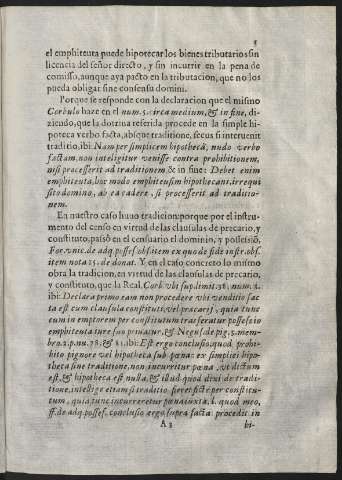 5
el emphiteuta puede hipotecar los bienes tributarios sin
licencia del señor directo, y sin incurrir en la pena de
comisso, aunque aya pacto en la tributacion, que no los
pueda obligar sine consensu domini.
Porque se responde con la declaracion que el mismo
Corbulo haze en el num. 5. circa medium, & in fine, di-
ziendo, que la dotrina referida procede en la simple hi-
poteca verbo facta, absque traditione, secus si interuenit
traditio, ibi: Nam per simplicem hipothecã, nudo verbo
factam, non inteligitur venisse contra prohibitionem,
nisi processerit ad traditionem & in fine: Debet enim
emphiteuta, hoc modo emphiteusim hypothecans, irrequi
sito domino, ab ea cadere, si processerit ad traditio-
nem.
En nuestro caso huuo tradicion: porque por el instru-
mento del censo en virtud de las clausulas de precario, y
constituto, passò en el censuario el dominio, y possessiõ,
For. vnic. de adq. posses. obs. item ex quo de fide instr. obs.
item nota 25. de donat. Y en el caso concreto lo mismo
obra la tradicion, en virtud de las clausulas de precario,
y constituto, que la Real. Corb. vbi sup. limit. 38. num. 2.
ibi: Declara primo eam non procedere vbi venditio fac
ta est cum clausula constituti, vel precarij, quia tunc
cum in emptorem per constitutum trasferatur possessio
emphiteuta iure suo priuatur, & Negus. de pig. 5. mem-
bro. 2. p. nu. 78. & 81. ibi: Est ergo conclusio, quod prohi-
bito pignore vel hipotheca sub pœna: ex simplici hipo-
theca sine traditione, non incurretur pœna, vt dictum
est, & hipotheca est nulla, & illud quod dixi de tradi-
tione, intellige etiam si traditio fieret ficte per constitu-
tum, quia tunc incurreretur pœna iuxta. l. quod meo,
ff. de adq. posses. conclusio ergo supra facta: procedit in
A 3
hi-